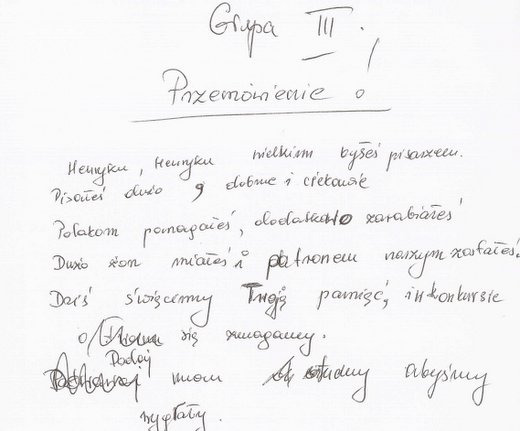 Grupa III.
Przemówienie!
Henryku, Henryku wielkim byłeś pisarzem.
Pisałeś dużo, dobrze i ciekawie
Polakom pomagałeś, dodatkowo zarabiałeś
Dużo żon miałeś i patronem naszym zostałeś.
Dziś święcimy Twoją pamięć, i w konkursie
o się zmagamy.
Podaj
nam abyśmy
wygrały.